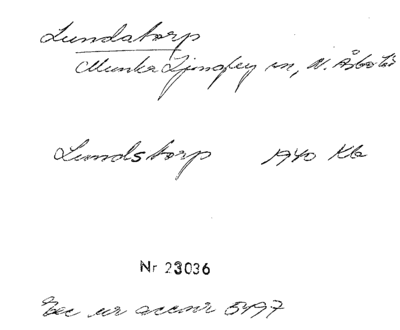 Lundatorp
Munka Ljungby sn, N. Åsbo hd
Lundstorp 1940 Kb
Nr 23036
Exc ur accnr 5497